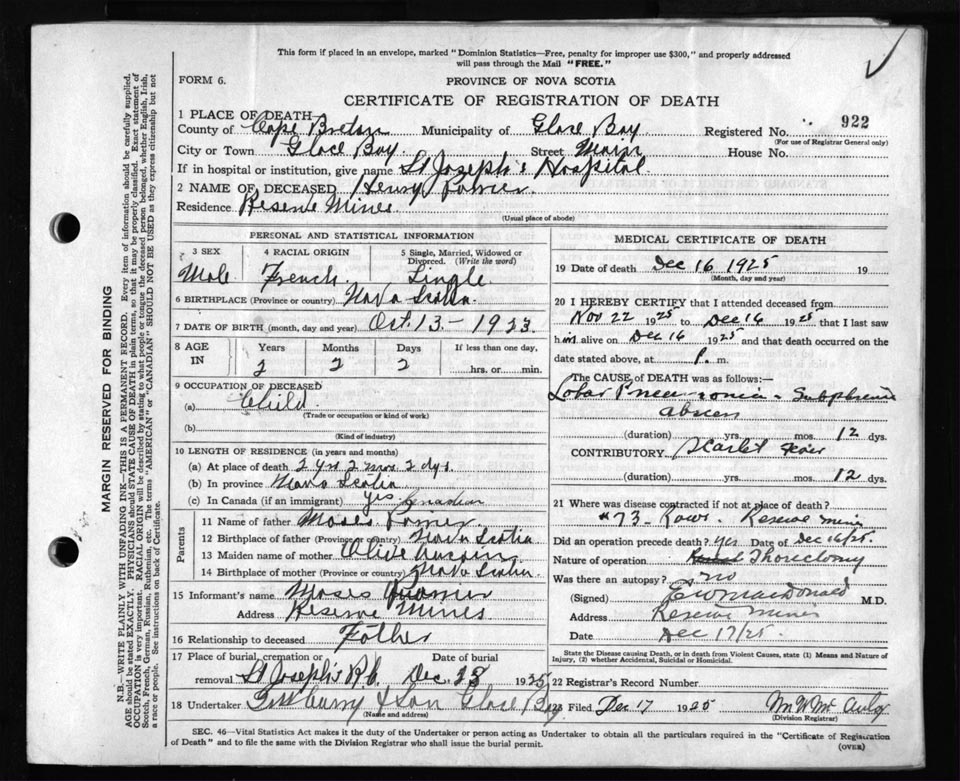 This form if placed in an envelope, marked "Dominion Statistics—Free, penalty for improper use $300," and properly addressed
will pass through the Mail "FREE."
FORM 6.
PROVINCE OF NOVA SCOTIA
CERTIFICATE OF REGISTRATION OF DEATH
1 PLACE OF DEATH
County of Cape Breton Municipality of Glace Bay Registered No. 922
(For use of Registrar General only)
City or Town Glace Bay Street Main House No.
If in hospital or institution, give name St Joseph's Hospital
2 NAME OF DECEASED Henry
Residence Reserve Mines
(Usual place of abode)
PERSONAL AND STATISTICAL INFORMATION
3 SEX 4 RACIAL ORIGIN 5 Single, Married, Widowed or
Divorced. (Write the word)
Male French Single
6 BIRTHPLACE (Province or country) Nova Scotia
7 DATE OF BIRTH (month, day and year) Oct. 13 - 1923
8 AGE IN Years Months Days If less than one day,
2 2 2 hrs. or min.
9 OCCUPATION OF DECEASED
(a) Child
(Trade or occupation or kind of work)
(b)
(Kind of industry)
10 LENGTH OF RESIDENCE (in years and months)
(a) At place of death 2 yrs 2 mos 2 dys.
(b) In province Nova Scotia
(c) In Canada (if an immigrant) yes Canadian
Parents
11 Name of father Moses
12 Birthplace of father (Province or country) Nova Scotia
13 Maiden name of mother Olive Aucoin
14 Birthplace of mother (Province or country) Nova Scotia
15 Informant's name Moses
Address Reserve Mines
16 Relationship to deceased Father
17 Place of burial, cremation or Date of burial
removal St Joseph's R.C. Dec. 1925
18 Undertaker & Son Glace Bay
(Name and address)
MEDICAL CERTIFICATE OF DEATH
19 Date of death Dec 16 1925 19
(Month, day and year)
20 I HEREBY CERTIFY that I attended deceased from
Nov 22 1925 to Dec 16 1925 that I last saw
him alive on Dec 16 1925 and that death occurred on the
date stated above, at P. m.
The CAUSE OF DEATH was as follows:—
Lobar Pneumonia - Subphrenic
abscess
(duration) yrs. mos. 12 dys.
CONTRIBUTORY Scarlet fever
(duration) yrs. mos. 12 dys.
21 Where was disease contracted if not at place of death?
#73 - Rows. Reserve Mines
Did an operation precede death? yes Date of Dec 16/25.
Nature of operation Thorectomy
Was there an autopsy? no
(Signed) MacDonald M.D.
Address Reserve Mines
Date Dec 17/25.
State the Disease causing Death, or in death from Violent Causes, state (1) Means and Nature of
Injury, (2) whether Accidental, Suicidal or Homicidal.
22 Registrar's Record Number
23 Filed Dec 17 1925
(Division Registrar)
SEC. 46—Vital Statistics Act makes it the duty of the Undertaker or person acting as Undertaker to obtain all the particulars required in the "Certificate of Registration
of Death" and to file the same with the Division Registrar who shall issue the burial permit.
(OVER)
MARGIN RESERVED FOR BINDING
N.B.—WRITE PLAINLY WITH UNFADING INK—THIS IS A PERMANENT RECORD. Every item of information should be carefully supplied.
AGE should be stated EXACTLY. PHYSICIANS should STATE CAUSE OF DEATH in plain terms, so that it may be properly classified. Exact statement of
OCCUPATION is very important. RACIAL ORIGIN will be described by stating to what people or tongue the deceased person belonged, whether English, Irish,
Scotch, French, German, Russian, Ruthenian, etc. The terms "AMERICAN" or "CANADIAN" SHOULD NOT BE USED as they express citizenship but not
a race or people. See instructions on back of Certificate.